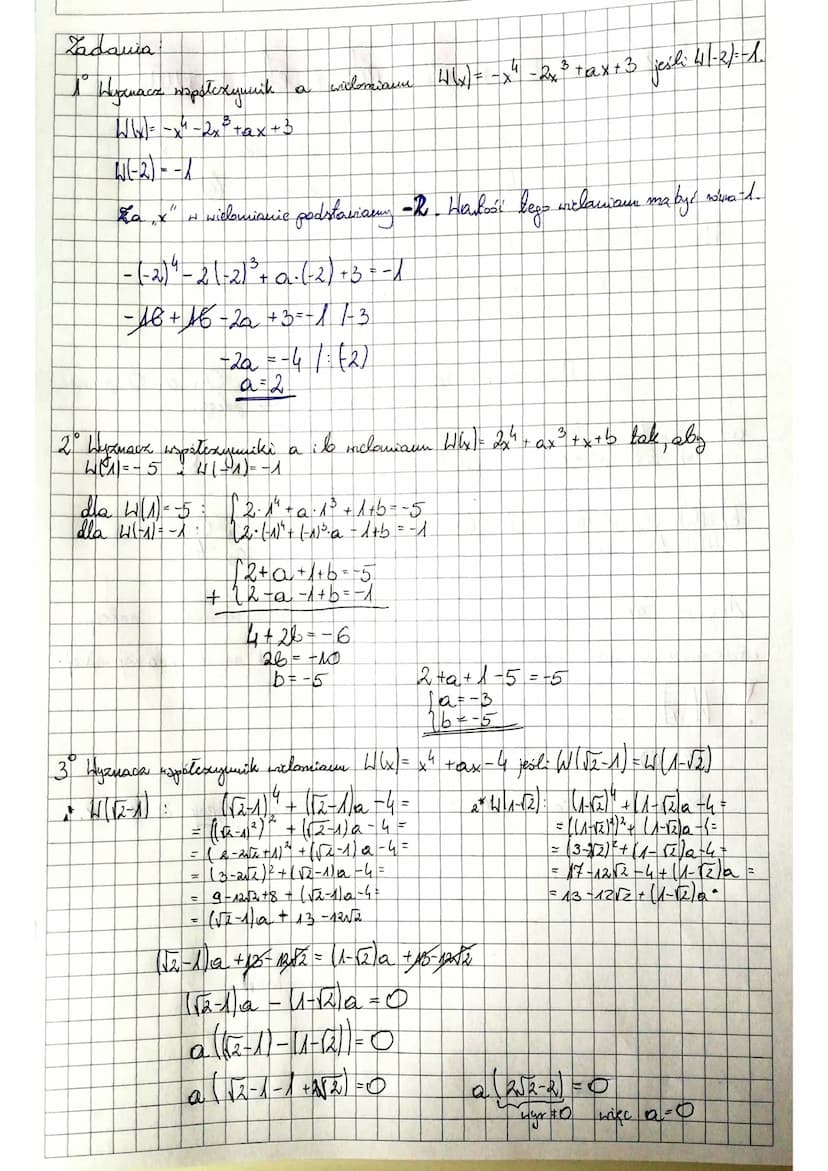 Zadania:
1° Wyznacz współczynnik a wielomianu W(x) = -x⁴ - 2x³ + ax + 3 jeśli W(-2) = -1.
W(x) = -x⁴ - 2x³ + ax + 3
W(-2) = -1
Za „x" w wielomianie podstawiamy -2. Wartość tego wielomianu ma być równa -1.
-(-2)⁴ - 2(-2)³ + a·(-2) + 3 = -1
-16 + 16 - 2a + 3 = -1 /-3
-2a = -4 / : (-2)
a = 2
2° Wyznacz współczynniki a i b wielomianu W(x) = 2x⁴ + ax³ + x + b tak, aby
W(1) = -5 i W(-1) = -1
dla W(1) = -5 : { 2·1⁴ + a·1³ + 1 + b = -5
dla W(-1) = -1 : { 2·(-1)⁴ + (-1)³·a - 1 + b = -1
{ 2 + a + 1 + b = -5
+ { 2 - a - 1 + b = -1
4 + 2b = -6
2b = -10
b = -5
2 + a + 1 - 5 = -5
{ a = -3
{ b = -5
3° Wyznacz współczynnik wielomianu W(x) = x⁴ + ax - 4 jeśli W(√2-1) = W(1-√2)
1* W(√2-1) : (√2-1)⁴ + (√2-1)a - 4 =
= ((√2-1)²)² + (√2-1)a - 4 =
= (2 - 2√2 + 1)² + (√2-1)a - 4 =
= (3-2√2)² + (√2-1)a - 4 =
= 9 - 12√2 + 8 + (√2-1)a - 4 =
= (√2-1)a + 13 - 12√2
2* W(1-√2) : (1-√2)⁴ + (1-√2)a - 4 =
= ((1-√2)²)² + (1-√2)a - 4 =
= (3-2√2)² + (1-√2)a - 4 =
= 17 - 12√2 - 4 + (1-√2)a =
= 13 - 12√2 + (1-√2)a
(√2-1)a + 13 - 12√2 = (1-√2)a + 13 - 12√2
(√2-1)a - (1-√2)a = 0
a((√2-1) - (1-√2)) = 0
a(√2 - 1 - 1 + √2) = 0
a(2√2-2) = 0
wyr ≠ 0 więc a = 0